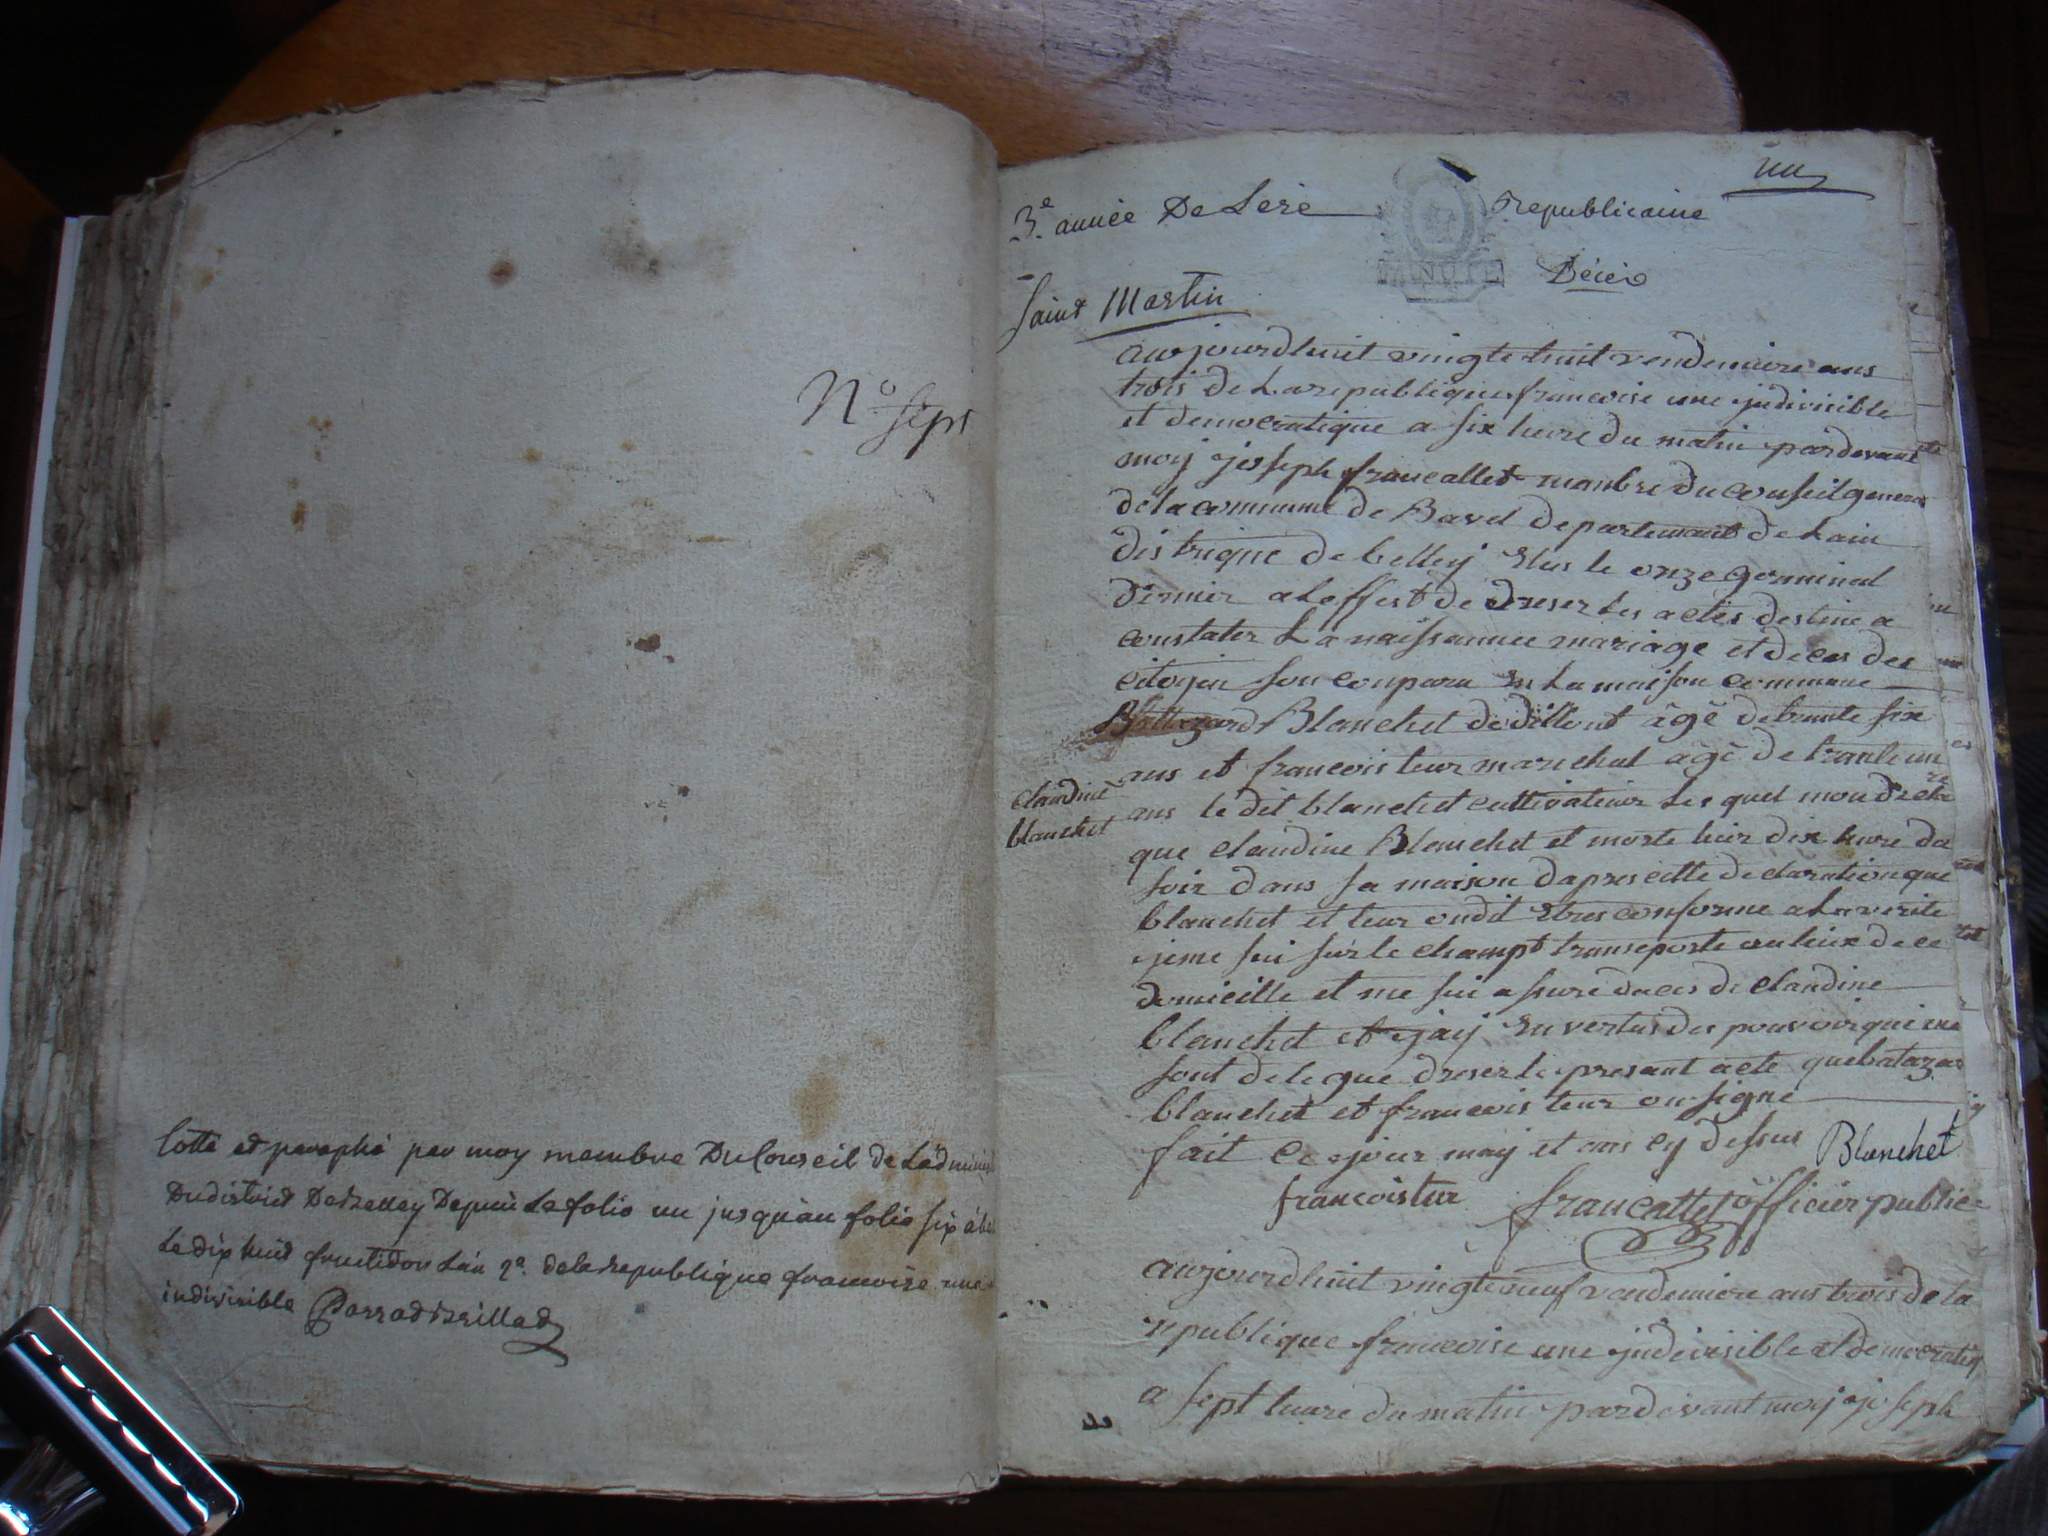 N.o sept
Cotté et paraphé par moy membre Du Conseil de Ladminis
Dudistrict De Belley Depuis Le folio un jusquàu folio six à bel
Le dix huit fructidor Lán 2e. dela republique francoise une
indivisible
un
3.e année De Lerè republicaine
MINUTE
Décès
Saint Martin
aujourdhuit vingte huit vendemiere ans
trois de La republique francoise une indivisible
et democratique a six heure du matin pardevant
moy joseph francallet manbre du conseil general
de la commune de Bavel departemant de Lain
distrique de belley Elus le onze germinal
dernier a Leffest de dreser Les actes destine a
constater La naissannce mariage et deces des
citoyin son conparu En La maison commune
Baltazard Blanchet de age de trante six
ans et francois teur marechal agé de trante un
claudine
blanchet
ans le dit blanchet cultivateur Les quel mon declare
que claudine Blanchet et morte hier dix heure du
soir dans sa maison dapres cette declaration que
blanchet et teur ondit Etres conforme a La verite
jeme sui sur le champt transeporte au lieux de ce
domicille et me sui assure duces de claudine
blanchet et jay En vertus des pouvoir qui me
sont delegue dreser le presant acte que batazar
blanchet et francois teur on signe
fait Ce jour moy et ans cy dessus Blanchet
francois teur francallet officier public
aujourdhuit vingte neuf vendemiere ans trois de la
republique francoise une indivisible et democratiq
a sept heure du matin pardevant moy joseph